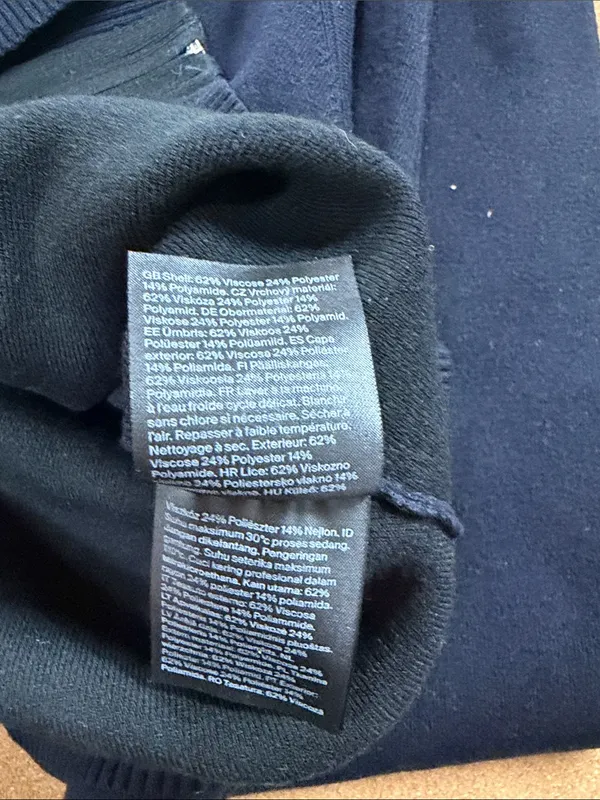 GB Shell: 62% Viscose 24% Polyester
14% Polyamide. CZ Vrchový materiál:
62% Viskóza 24% Polyester 14%
Polyamid. DE Obermaterial: 62%
Viskose 24% Polyester 14% Polyamid.
EE Ümbris: 62% Viskoos 24%
Polüester 14% Polüamiid. ES Capa
exterior: 62% Viscosa 24% Poliéster
14% Poliamida. FI Päällikangas:
62% Viskoosia 24% Polyesteriä 14%
Polyamidia. FR Lavé à la machine
à l'eau froide cycle délicat. Blanchir
sans chlore si nécessaire. Sécher à
l'air. Repasser à faible température.
Nettoyage à sec. Exterieur: 62%
Viscose 24% Polyester 14%
Polyamide. HR Lice: 62% Viskozno
24% Poliestersko vlakno 14%
vlakno. HU Külső: 62%
Viszkóz 24% Poliészter 14% Nejlon. ID
Suhu maksimum 30°c proses sedang.
Jangan dikelantang. Pengeringan
Suhu seterika maksimum
110°c. Cuci kering profesional dalam
Kain utama: 62%
24% poliester 14% poliamida.
IT 62% Viscosa
24% Poliestere 14% Poliammide.
LT 62% Viskozė 24%
14% pluoštas.
LV 62% Viskoze 24%
14%
62% 24%
14%
PT Exterior:
62% 24% 14%
Poliamida. RO Tesatura: 62% Viscoză